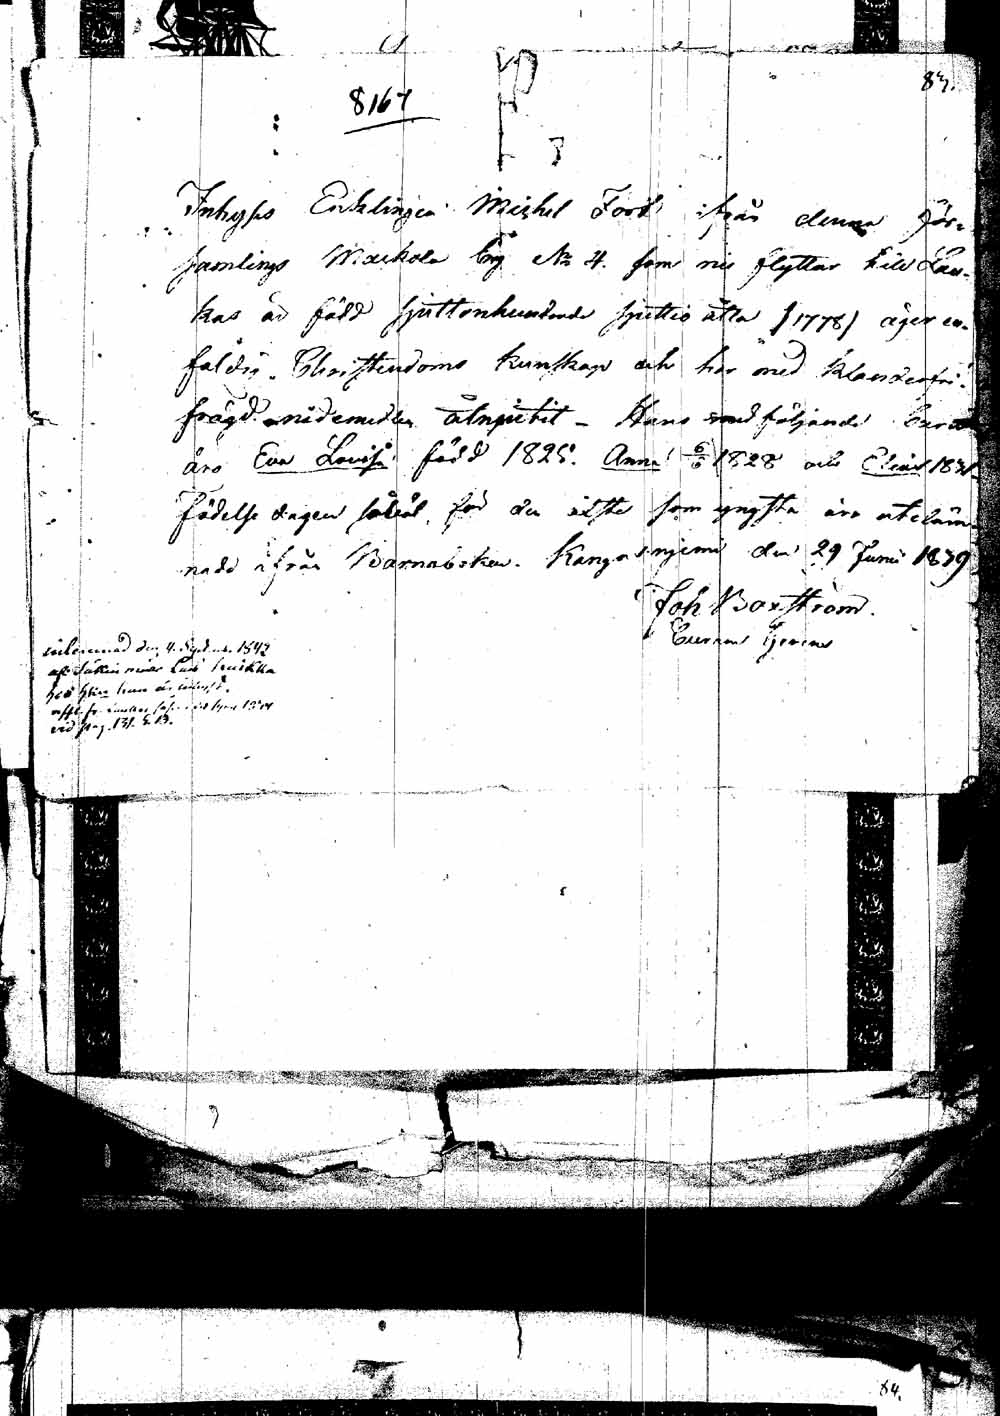 83.
8167
Inhyses Enklingen Michel Ford ifrån denna För-
samlings Makkola by No 4. som nu flyttar till Lau-
kas är född sjuttonhundrade sjuttio åtta (1778) äger en-
faldig Christendoms kunskap och har med klanderfri
frägd nådemedlen åtnjutit - Hans medföljande barn
äro Eva Lovisa född 1825. Anna 6/6 1828 och Elias 1831
födelse dagen såväl för den som yngsta äro utelem-
nade ifrån Barnaboken. Kangasnjemi den 29 Junii 1839
Joh Boxström.
inlemnad den 4. 1842
af
hos
vid pag. 131.
84.